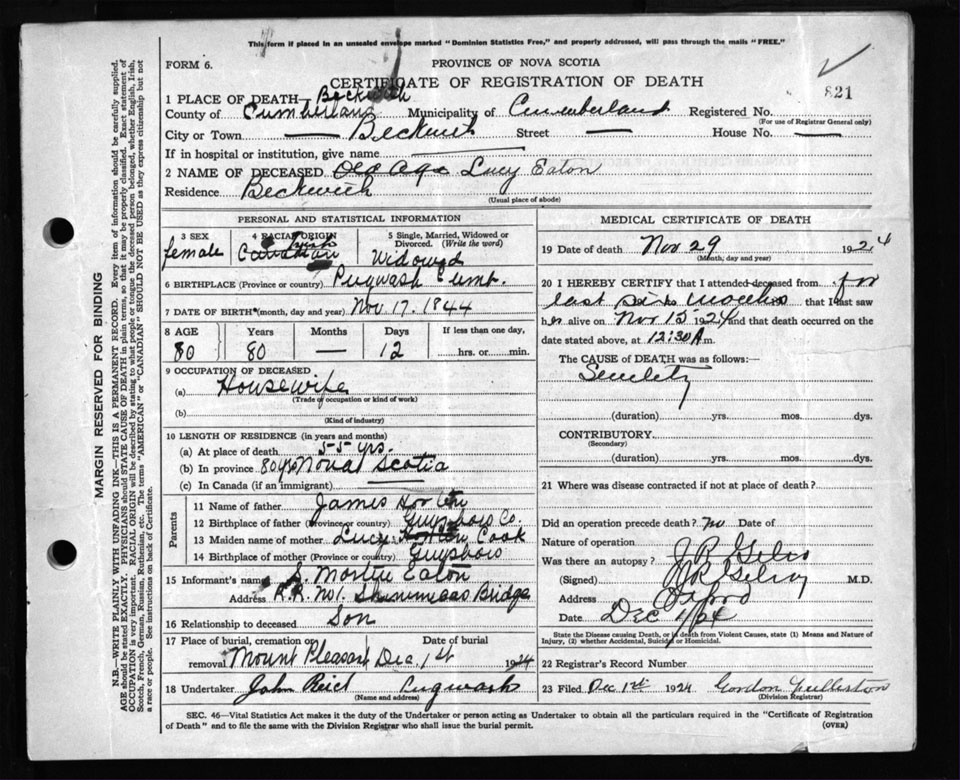 This form if placed in an unsealed envelope marked "Dominion Statistics Free," and properly addressed, will pass through the mails "FREE."
FORM 6.
PROVINCE OF NOVA SCOTIA
CERTIFICATE OF REGISTRATION OF DEATH
821
1 PLACE OF DEATH— Beckwith
County of Cumberland Municipality of Cumberland Registered No.
(For use of Registrar General only)
City or Town Beckwith Street House No.
If in hospital or institution, give name
2 NAME OF DECEASED Old Age Lucy Eaton
Residence Beckwith
(Usual place of abode)
PERSONAL AND STATISTICAL INFORMATION
3 SEX 4 RACIAL ORIGIN 5 Single, Married, Widowed or Divorced. (Write the word)
female Canadian Irish Widowed
6 BIRTHPLACE (Province or country) Pugwash Cumb.
7 DATE OF BIRTH (month, day and year) Nov 17. 1844
8 AGE Years Months Days If less than one day,
80 80 — 12 hrs. or min.
9 OCCUPATION OF DECEASED
(a) Housewife
(Trade or occupation or kind of work)
(b)
(Kind of industry)
10 LENGTH OF RESIDENCE (in years and months)
(a) At place of death 55 yrs.
(b) In province 80 yrs Nova Scotia
(c) In Canada (if an immigrant)
Parents
11 Name of father James
12 Birthplace of father (Province or country) Guysboro Co.
13 Maiden name of mother Lucy Cook
14 Birthplace of mother (Province or country) Guysboro
15 Informant's name Eaton
Address R.R. No 1. Shinimicas Bridge
16 Relationship to deceased Son
17 Place of burial, cremation or removal Date of burial
Mount Pleasant Dec. 1st 1924
18 Undertaker John Reid Pugwash
(Name and address)
MEDICAL CERTIFICATE OF DEATH
19 Date of death Nov 29 1924
(Month, day and year)
20 I HEREBY CERTIFY that I attended deceased from for
last six months that I last saw
her alive on Nov 15 1924 and that death occurred on the
date stated above, at 12:30 A m.
The CAUSE of DEATH was as follows:
Senility
(duration) yrs. mos. dys.
CONTRIBUTORY
(Secondary)
(duration) yrs. mos. dys.
21 Where was disease contracted if not at place of death?
Did an operation precede death? no Date of
Nature of operation
Was there an autopsy?
(Signed) J R Gilroy M.D.
Address Oxford
Date Dec 1/24
State the Disease causing Death, or in death from Violent Causes, state (1) Means and Nature of
Injury, (2) whether Accidental, Suicidal or Homicidal.
22 Registrar's Record Number
23 Filed Dec 1st 1924 Gordon
(Division Registrar)
SEC. 46—Vital Statistics Act makes it the duty of the Undertaker or person acting as Undertaker to obtain all the particulars required in the "Certificate of Registration
of Death" and to file the same with the Division Registrar who shall issue the burial permit.
(OVER)
MARGIN RESERVED FOR BINDING
N.B.—WRITE PLAINLY WITH UNFADING INK—THIS IS A PERMANENT RECORD. Every item of information should be carefully supplied.
AGE should be stated EXACTLY. PHYSICIANS should STATE CAUSE OF DEATH in plain terms, so that it may be properly classified. Exact statement of
OCCUPATION is very important. RACIAL ORIGIN will be described by stating to what people or tongue the deceased person belonged, whether English, Irish,
Scotch, French, German, Russian, Ruthenian, etc. The terms "AMERICAN" or "CANADIAN" SHOULD NOT BE USED as they express citizenship but not
a race or people. See instructions on back of Certificate.